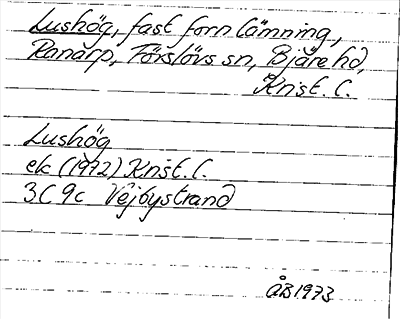 Lushög, fast fornlämning,
Ranarp, Förslövs sn, Bjäre hd,
Krist. l.
Lushög
ek (1972) Krist. l.
3C 9c Vejbystrand
ÅB 1973